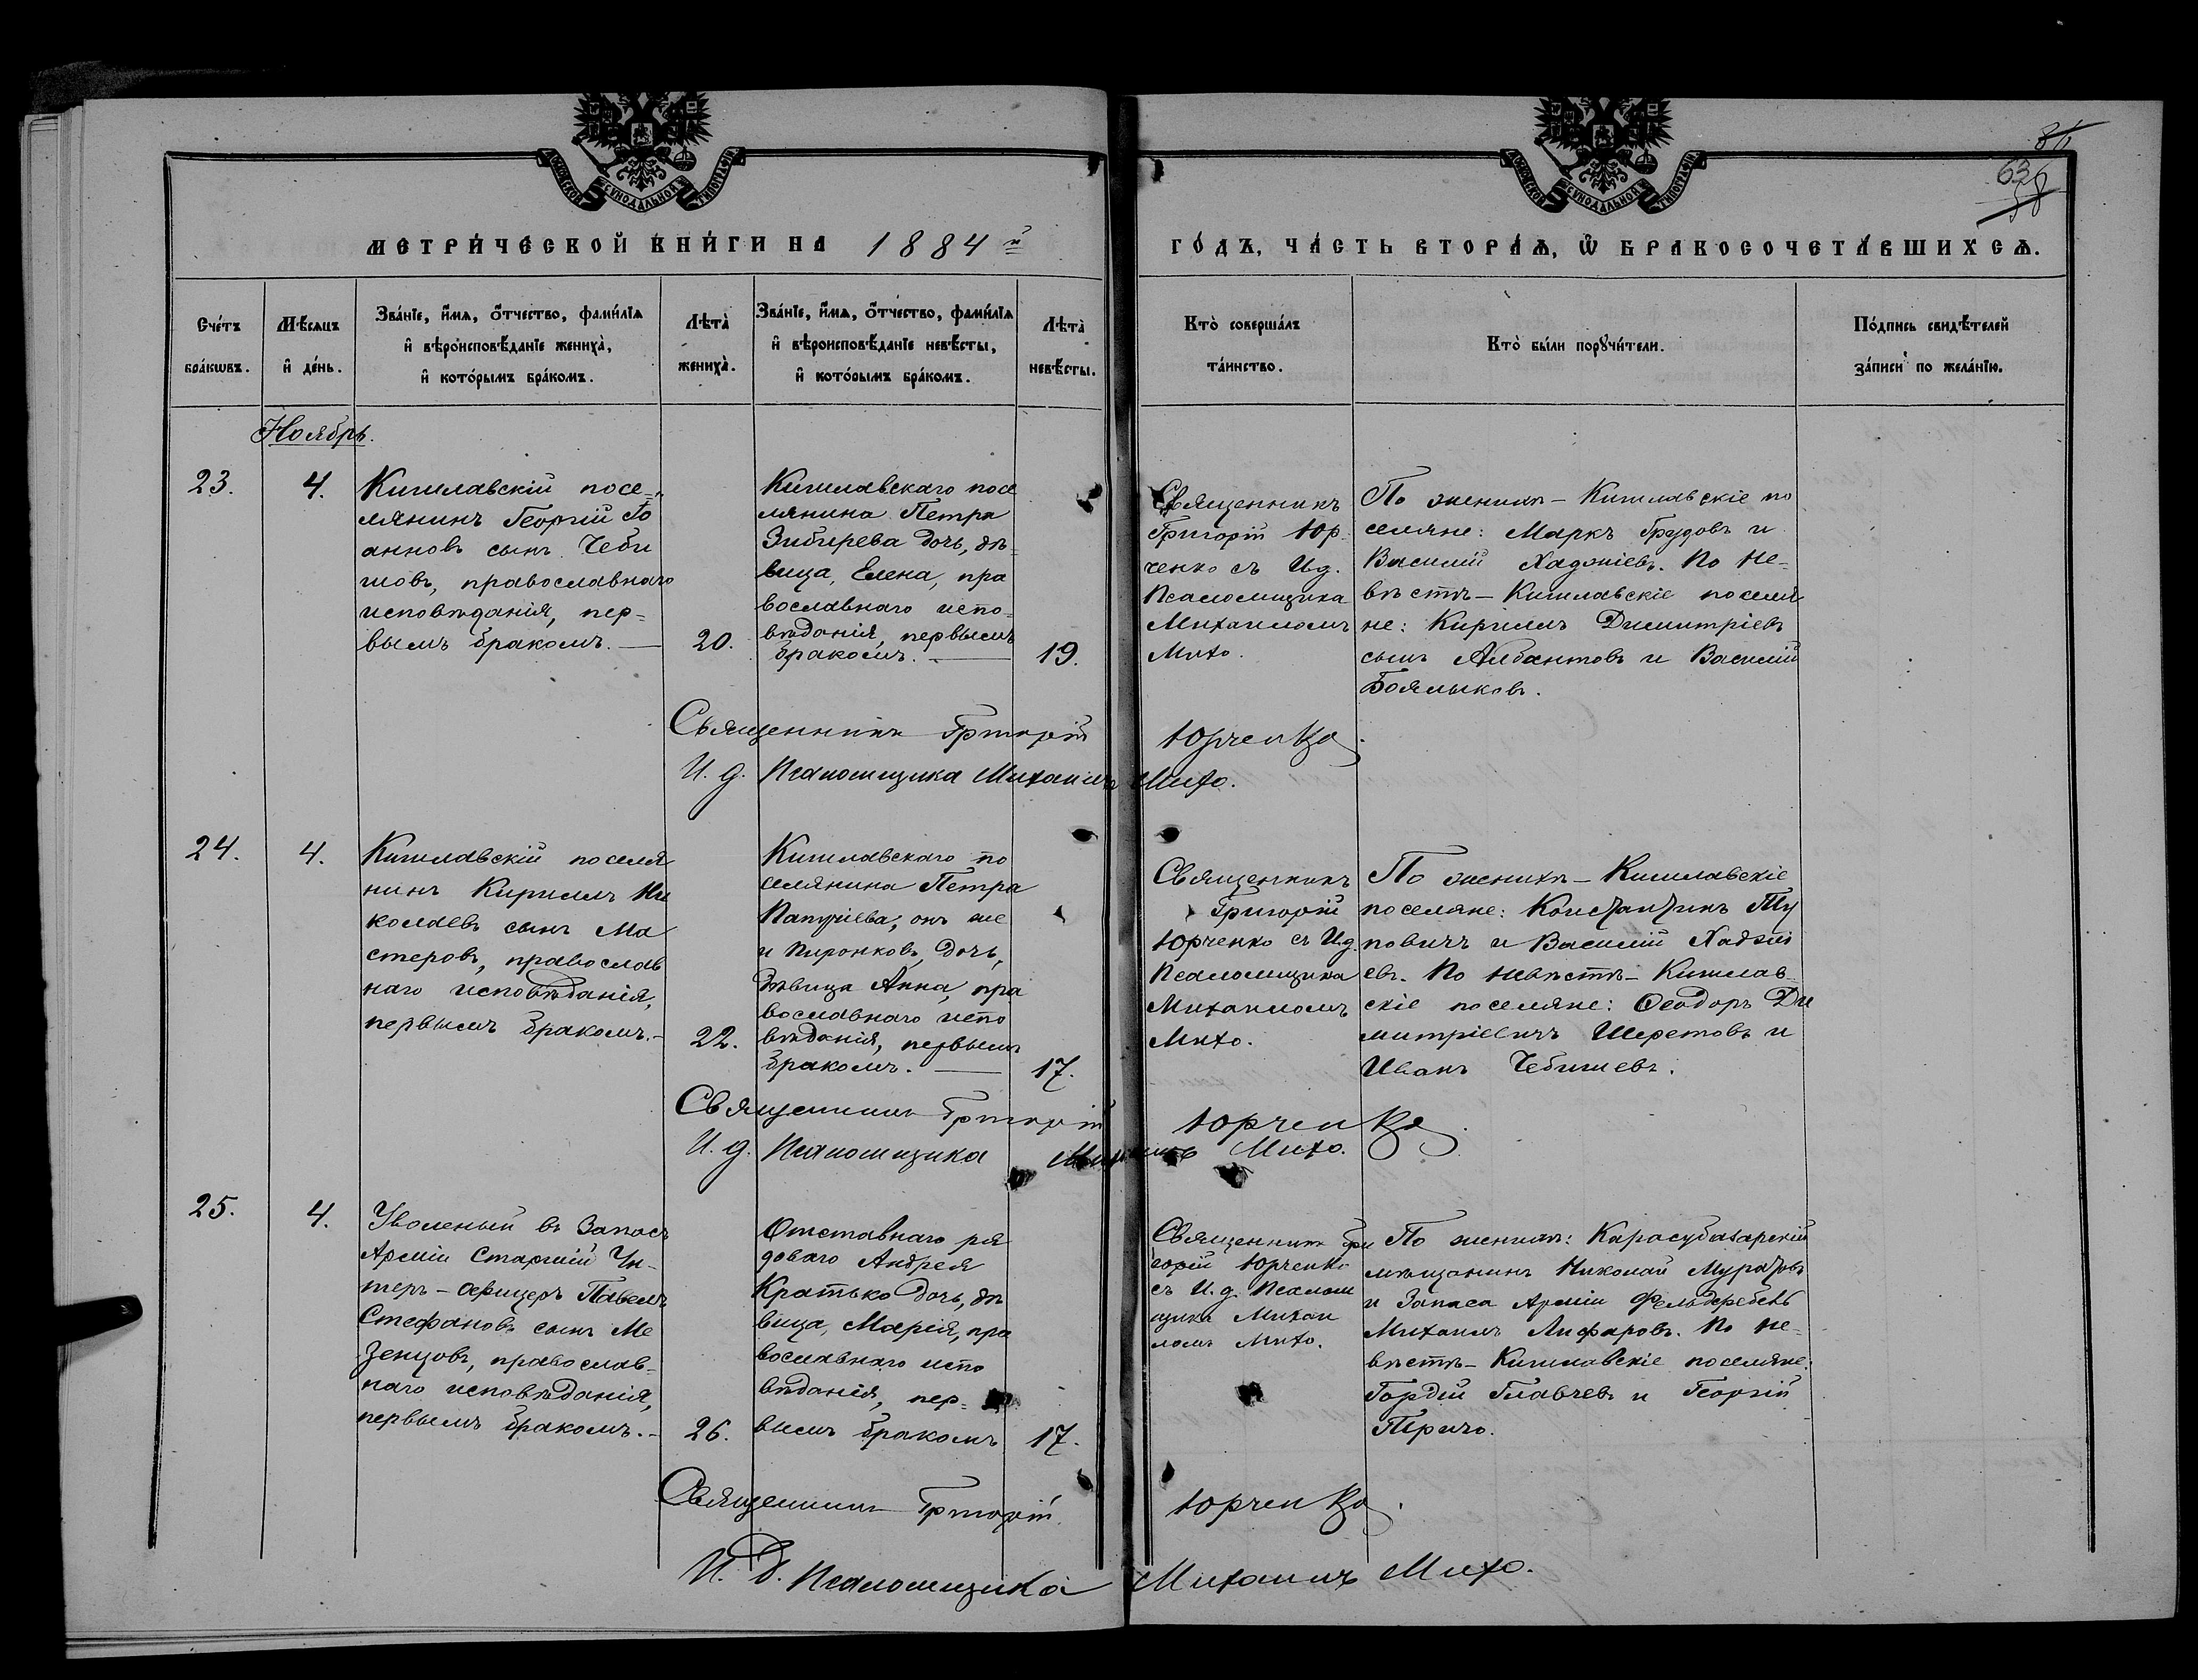 МОСКОВСКОЙ СѴНОДАЛЬНОЙ ТИПОГРАФІИ
МОСКОВСКОЙ СѴНОДАЛЬНОЙ ТИПОГРАФІИ
636
38
МЕТРИ́ЧЕСКОЙ КНИ́ГИ НА 1884 й
ГО́ДЪ, ЧА́СТЬ ВТОРА́Ѧ, Ѡ҆ БРАКОСОЧЕТА́ВШИХСѦ.
Сче́тъ
бра́кѡвъ.
Мѣ́сѧцъ
и҆ де́нь.
Зва́нїе, и҆́мѧ, ѻ҆́тчество, фами́лїѧ
и҆ вѣроисповѣ́данїе жениха̀,
и҆ кото́рымъ бра́комъ.
Лѣта̀
жениха̀.
Зва́нїе, и҆́мѧ, ѻ҆́тчество, фами́лїѧ
и҆ вѣроисповѣ́данїе невѣ́сты,
и҆ кото́рымъ бра́комъ.
Лѣта̀
невѣ́сты.
Кто̀ соверша́лъ
та́инство.
Кто̀ бы́ли порꙋчи́тели.
По́дпись свидѣ́телей
за́писи по жела́нїю.
Ноябрь.
23.
4.
Кишлавскій посе=
лянинъ Георгій Іо
анновъ сынъ Чеби
шовъ, православнаго
исповѣданія, пер=
вымъ бракомъ. —
20.
Кишлавскаго посе
лянина Петра
Зибирева дочь, дѣ=
вица, Елена, пра
вославнаго испо=
вѣданія, первымъ
бракомъ. —
19.
Священникъ
Григорій Юр=
ченко съ И.д.
Псаломщика
Михаиломъ
Михо.
По женихѣ – Кишлавскіе по
селяне: Маркъ Грудовъ и
Василій Хаджіевъ. По не=
вѣстѣ – Кишлавскіе поселя
не: Кириллъ Димитріевъ
сынъ Албантовъ и Василій
Боялыковъ.
Священникъ Григорій Юрченко.
И. д. Псаломщика Михаилъ Михо.
24.
4.
Кишлавскій поселя
нинъ Кириллъ Ни
колаевъ сынъ Ма
стеровъ, православ
наго исповѣданія,
первымъ бракомъ. –
22.
Кишлавскаго по
селянина Петра
онъ же
и Пиронковъ, дочь,
дѣвица Анна, пра
вославнаго испо
вѣданія, первымъ
бракомъ. —
17.
Священникъ
Григорій
Юрченко съ И.д.
Псаломщика
Михаиломъ
Михо.
По женихѣ – Кишлавскіе
поселяне: Константинъ Ту
повичъ и Василій Хаджі
евъ. По невѣстѣ – Кишлав=
скіе поселяне: Ѳеодоръ Ди
митріевичъ Шеретовъ и
Иванъ Чебишевъ.
Священникъ Григорій Юрченко.
И. д. Псаломщика Михаилъ Михо.
25.
4.
Уволеный въ Запасъ
Арміи Старшій Ун=
теръ – офицеръ Павелъ
Стефановъ сынъ Ме
зенцовъ, православ=
наго исповѣданія,
первымъ бракомъ. –
26.
Отставнаго ря
доваго Андрея
Кратько дочь, дѣ
вица, Марія, пра
вославнаго испо
вѣданія, пер=
вымъ бракомъ
17.
Священникъ Гри
горій Юрченко
съ И. д. Псалом
щика Михаи
ломъ Михо.
По женихѣ: Карасубазарскій
мѣщанинъ Николай Муратовъ
и Запаса Арміи Фельдфебель
Михаилъ Лифаровъ. По не=
вѣстѣ – Кишлавскіе поселяне:
Гордій Главчевъ и Георгій
Причо.
Священникъ Григорій Юрченко.
И. д. Псаломщика Михаилъ Михо.